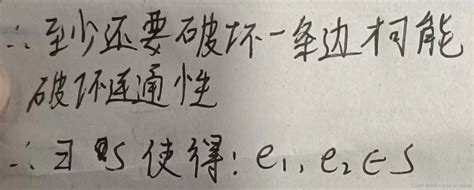 ∴ 至少还要破坏一条边才可能
破坏连通性
∴ ∃ S 使得: e₁, e₂ ∈ S